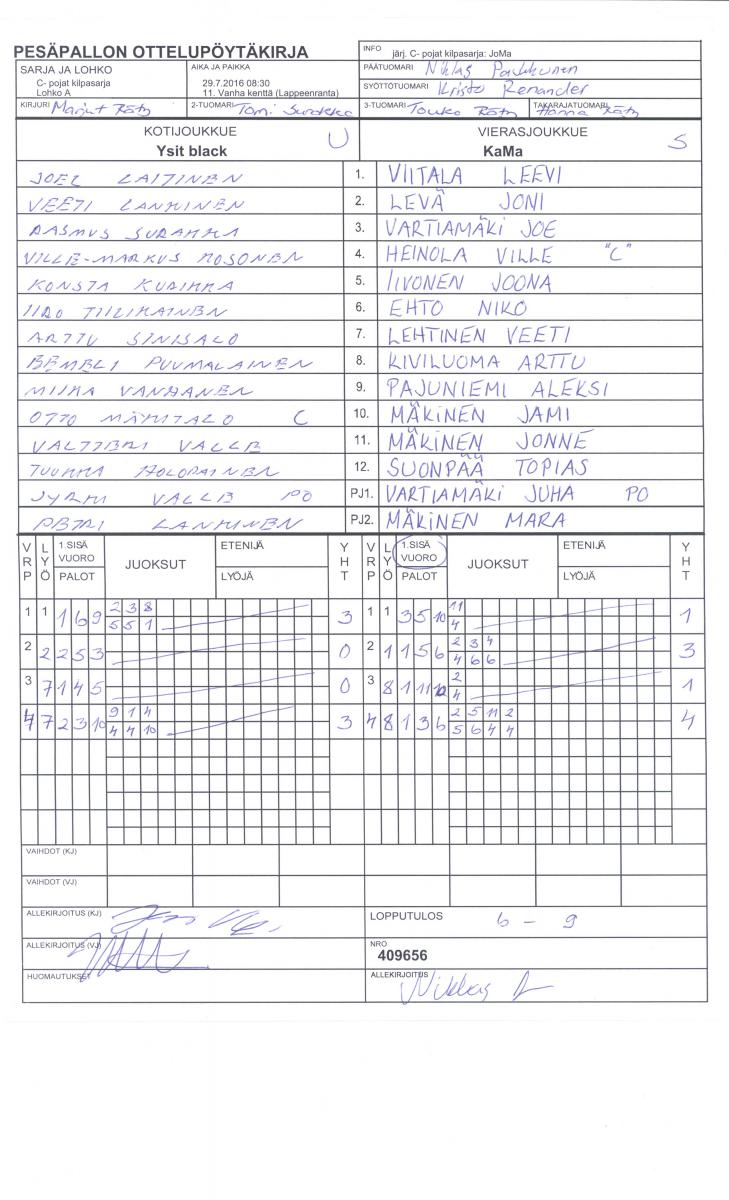 PESÄPALLON OTTELUPÖYTÄKIRJA
INFO järj. C- pojat kilpasarja: JoMa
SARJA JA LOHKO
C- pojat kilpasarja
Lohko A
AIKA JA PAIKKA
29.7.2016 08:30
11. Vanha kenttä (Lappeenranta)
PÄÄTUOMARI Niklas
SYÖTTÖTUOMARI Kristo Renander
KIRJURI Marjut Räty
2-TUOMARI Tomi
3-TUOMARI Touko Räty
TAKARAJATUOMARI Hanna Räty
KOTIJOUKKUE U
Ysit black
VIERASJOUKKUE S
KaMa
JOEL LAITINEN 1. VIITALA LEEVI
VEETI LANKINEN 2. LEVÄ JONI
RASMUS SURAKKA 3. VARTIAMÄKI JOE
VILLE-MARKUS MOSONEN 4. HEINOLA VILLE "C"
KONSTA KURIKKA 5. IIVONEN JOONA
IIRO TIILIKAINEN 6. EHTO NIKO
ARTTU SINISALO 7. LEHTINEN VEETI
PUUMALAINEN 8. KIVILUOMA ARTTU
MIIKA VANHANEN 9. PAJUNIEMI ALEKSI
OTTO MÄKITALO C 10. MÄKINEN JAMI
VALTTERI VALLE 11. MÄKINEN JONNE
TUUKKA HOLOPAINEN 12. SUONPÄÄ TOPIAS
JYRKI VALLE PO PJ1. VARTIAMÄKI JUHA PO
PETRI LANKINEN PJ2. MÄKINEN MARA
VRP LYÖ 1.SISÄ VUORO PALOT JUOKSUT ETENIJÄ LYÖJÄ YHT VRP LYÖ 1.SISÄ VUORO PALOT JUOKSUT ETENIJÄ LYÖJÄ YHT
1 1 1 6 9 2 3 8 3 1 1 3 5 10 11 1
5 5 1 4
2 2 2 5 3 0 2 1 1 5 6 2 3 4 3
4 6 6
3 7 1 4 5 0 3 8 1 11 12 2 1
4
4 7 2 3 10 9 1 4 3 4 8 1 3 6 2 5 11 2 4
4 4 10 5 6 4 4
VAIHDOT (KJ)
VAIHDOT (VJ)
ALLEKIRJOITUS (KJ)
LOPPUTULOS 6 - 9
ALLEKIRJOITUS (VJ)
NRO
409656
HUOMAUTUKSET
ALLEKIRJOITUS Niklas